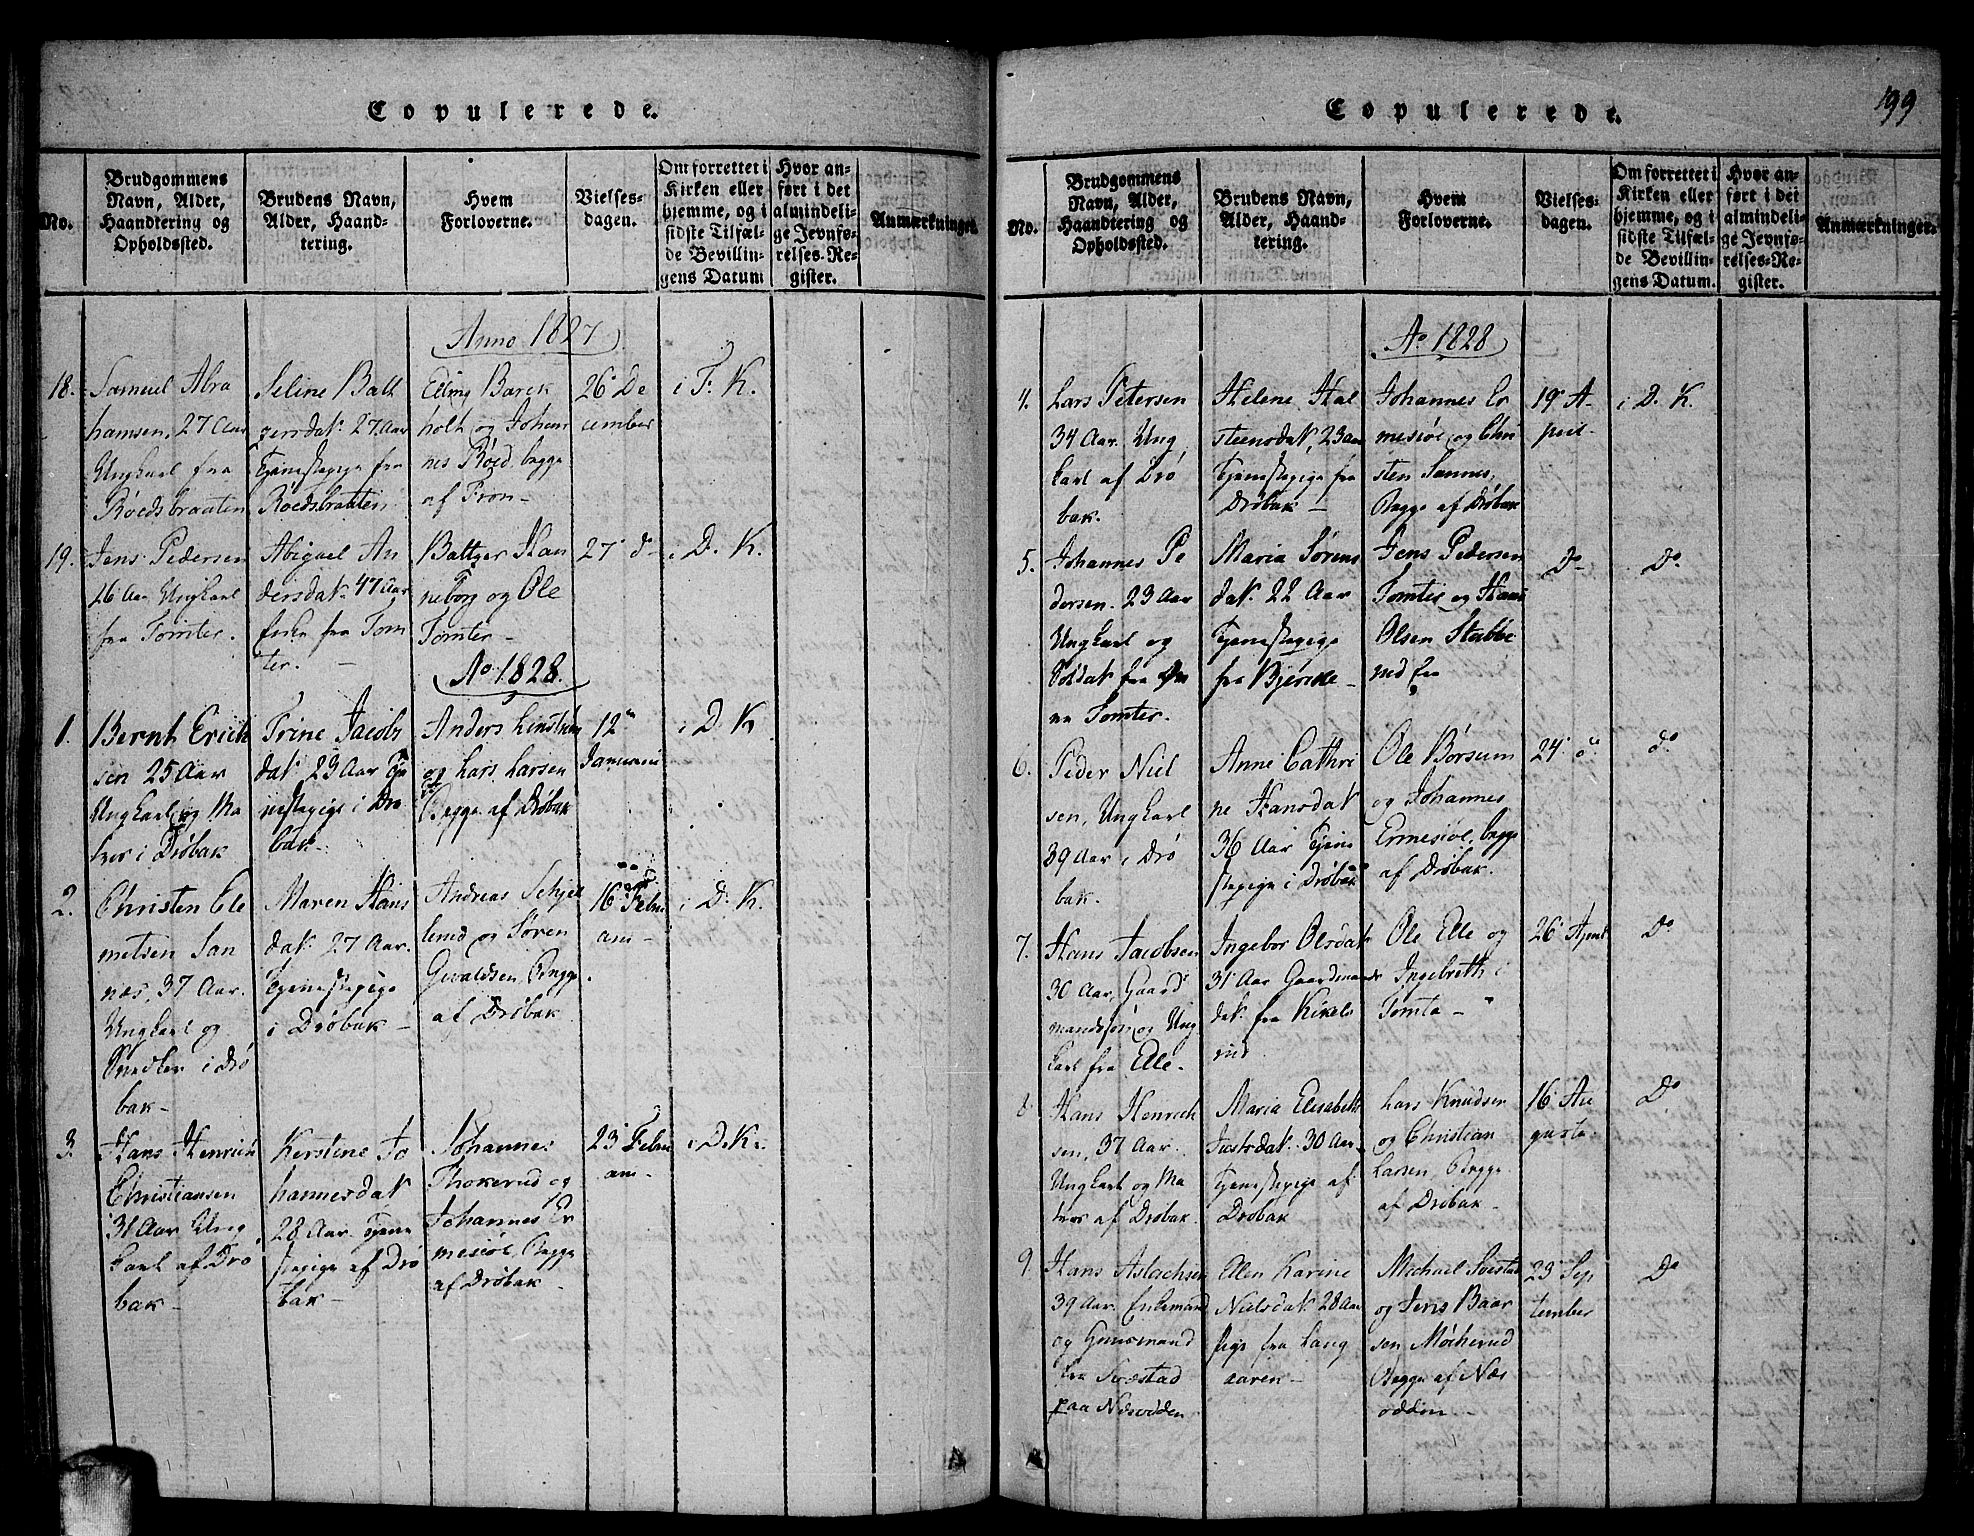 Copulerede.
No.
Brudgommens
Navn, Alder,
Haandtering og
Opholdssted.
Brudens Navn,
Alder, Haand-
tering.
Hvem
Forloverne.
Vielses-
dagen.
Om forrettet i
Kirken eller
hjemme, og i
sidste Tilfæl-
de Bevillin-
gens Datum
Hvor an-
ført i det
almindeli-
ge Jevnfø-
relses-Re-
gister.
Anmærkninger.
Anno 1827
18.
Samuel Abra
hamsen, 27 Aar
Ungkarl fra
Röedsbraaten
Seline Balt
zersdatr 27 Aar
Tjenestepige fra
Roedsbraaten
holt og Johan
nes Röed, begge
af Fron-
26 De
cember
i F. K.
19.
Jens Pedersen
26 Aar Ungkarl
fra Tomter.
Abigael An
dersdatr 47 Aar
Enke fra Tom
ter. -
Baltzer Han
neborg og Ole
Tomter -
27 d-
i D. K.
Ao 1828.
1.
Bernt Erich
sen 25 Aar
Ungkarl og Ma
tros i Dröbak
Trine Jacobs
datr 23 Aar Tje
nestepige i Drö
bak -
Anders
og Lars Larsen
Begge af Dröbak
12
Januarii
i D. K
2.
Christen Cle
metsen San
næs, 37 Aar.
Ungkarl og
Snedker i Drö
bak -
Maren Hans
datr 27 Aar.
Tjenestepige
i Dröbak -
Andreas Schjel
lerud og Sören
Gevaldsen, Begge
af Dröbak
16 Febru
arii -
i D. K.
3.
Hans Henrich
Christiansen
31 Aar Ung
karl af Drö
bak -
Kerstine Jo
hannesdatr
28 Aar. Tjene
stepige af Drö
bak -
Johannes
Thokerud og
Johannes Er
mesiöe, Begge
af Dröbak -
23 Febru
arii -
i D. K.
Copulerede.
199
No.
Brudgommens
Navn, Alder,
Haandtering og
Opholdssted.
Brudens Navn,
Alder, Haand-
tering.
Hvem
Forloverne.
Vielses-
dagen.
Om forrettet i
Kirken eller
hjemme, og i
sidste Tilfæl-
de Bevillin-
gens Datum.
Hvor an-
ført i det
almindeli-
ge Jevnfø-
relses-Re-
gister.
Anmærkninger.
Ao 1828
4.
Lars Petersen
34 Aar. Ung
karl af Drö
bak.
Helene Hal
steensdatr 23 Aar
Tjenestepige fra
Dröbak -
Johannes Er
mesiöe og Chri
sten Sannes,
Begge af Dröbak
19 A-
pril -
i D. K.
5.
Johannes Pe
dersen. 23 Aar
Ungkarl og
Soldat fra
Tomter.
Maria Sörens
datr 22 Aar
Tjenestepige
fra Bjercke -
Jens Pedersen
Tomter og Hans
Olsen Stubbe
rud fra
Do
Do
6.
Peder Niel
sen, Ungkarl
39 Aar i Drö
bak.
Anne Cathri
ne Hansdatr
36 Aar Tjene
stepige i Dröbak
Ole Börsum
og Johannes
Ermesiöe, begge
af Dröbak.
24
do
7.
Hans Jacobsen
30 Aar, Gaard
mandssön og Ung
karl fra Elle.
Ingebor Olsdatr
31 Aar Gaardmands
datr fra Kikels
rud
Ole Elle og
Ingebreth i
Tomta -
26
Do
8
Hans Henrich
sen, 37 Aar.
Ungkarl og Ma
tros af Dröbak
Maria Elisabeth
Justsdatr 30 Aar
Tjenestepige af
Dröbak
Lars Knudsen
og Christian
Larsen, Begge
af Dröbak
16 Au
gusti
Do
9.
Hans Aslachsen
39 Aar. Enkemand
og
fra Toiestad
paa Næsodden
Elen Karine
Nielsdatr 28 Aar
Pige fra Lang
aaren -
Michael Toiestad
og Jens Baar
sen Möcherud
Begge af Næs
odden. -
23 Sep
tember
Do